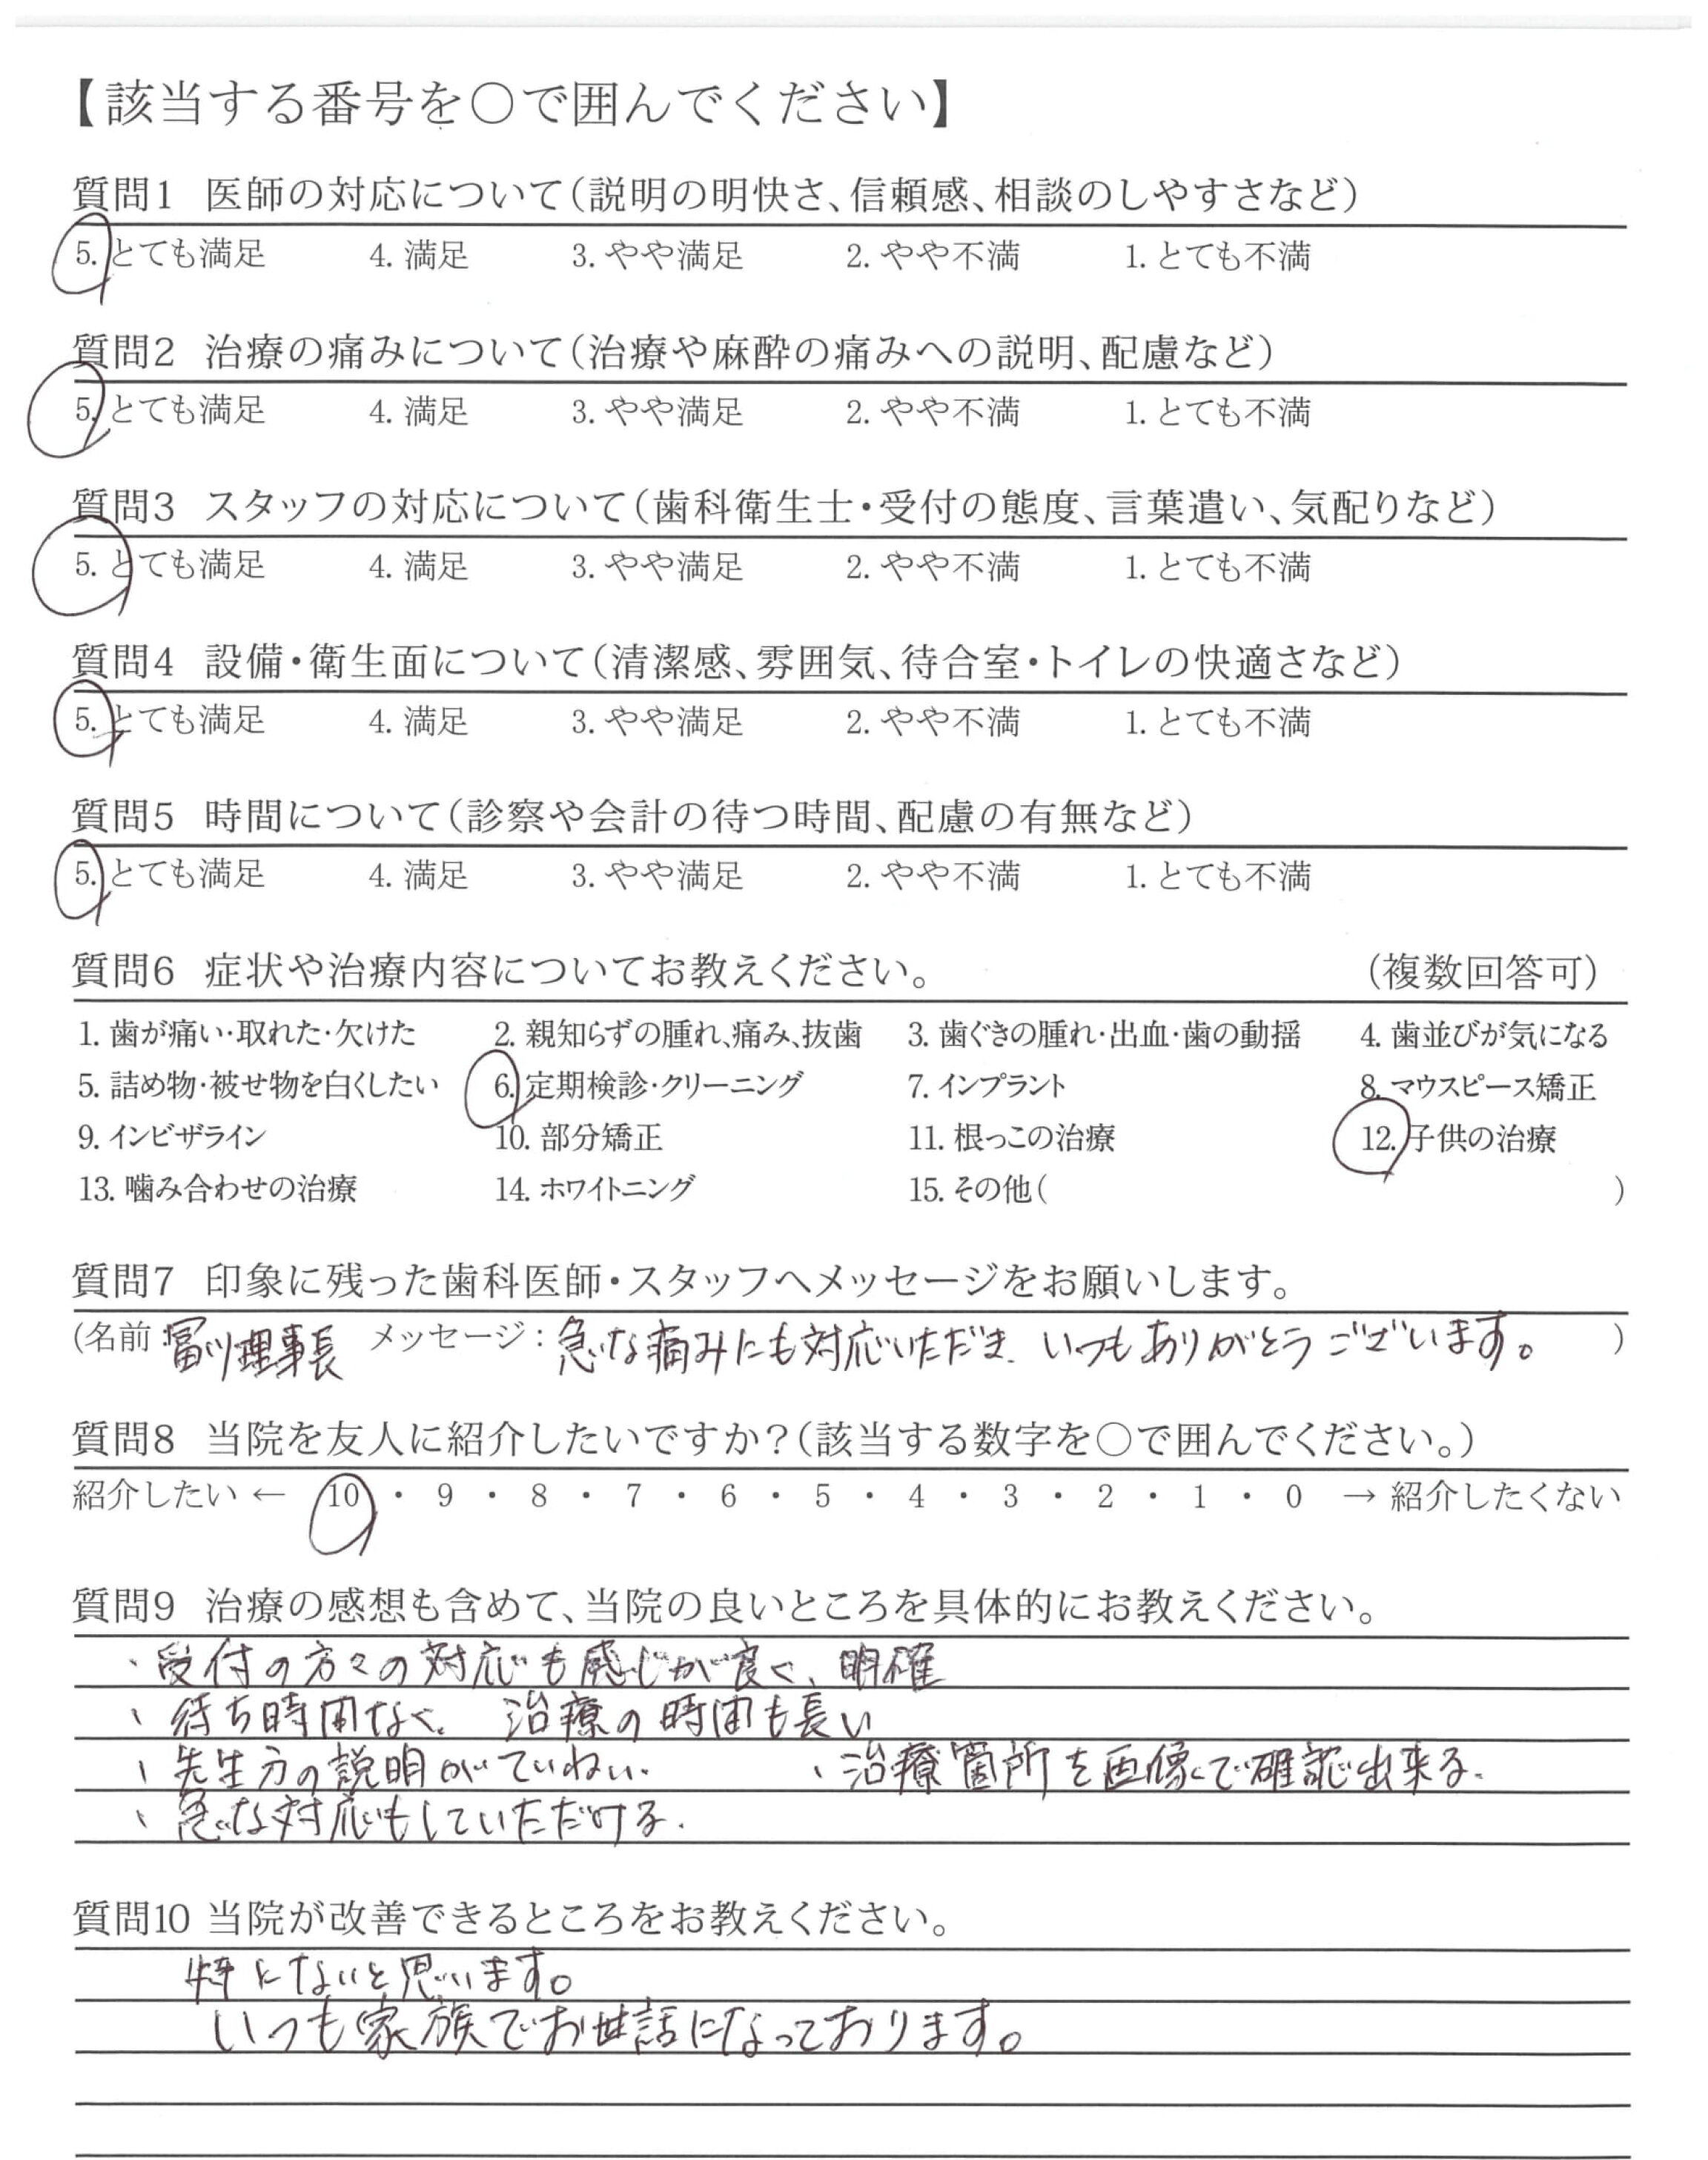 【該当する番号を〇で囲んでください】
質問1 医師の対応について(説明の明快さ、信頼感、相談のしやすさなど)
5. とても満足 4. 満足 3. やや満足 2. やや不満 1. とても不満
質問2 治療の痛みについて(治療や麻酔の痛みへの説明、配慮など)
5. とても満足 4. 満足 3. やや満足 2. やや不満 1. とても不満
質問3 スタッフの対応について(歯科衛生士・受付の態度、言葉遣い、気配りなど)
5. とても満足 4. 満足 3. やや満足 2. やや不満 1. とても不満
質問4 設備・衛生面について(清潔感、雰囲気、待合室・トイレの快適さなど)
5. とても満足 4. 満足 3. やや満足 2. やや不満 1. とても不満
質問5 時間について(診察や会計の待つ時間、配慮の有無など)
5. とても満足 4. 満足 3. やや満足 2. やや不満 1. とても不満
質問6 症状や治療内容についてお教えください。 (複数回答可)
1. 歯が痛い・取れた・欠けた 2. 親知らずの腫れ、痛み、抜歯 3. 歯ぐきの腫れ・出血・歯の動揺 4. 歯並びが気になる
5. 詰め物・被せ物を白くしたい 6. 定期検診・クリーニング 7. インプラント 8. マウスピース矯正
9. インビザライン 10. 部分矯正 11. 根っこの治療 12. 子供の治療
13. 噛み合わせの治療 14. ホワイトニング 15. その他( )
質問7 印象に残った歯科医師・スタッフへメッセージをお願いします。
(名前:冨川理事長 メッセージ:急な痛みにも対応いただき、いつもありがとうございます。 )
質問8 当院を友人に紹介したいですか?(該当する数字を〇で囲んでください。)
紹介したい ← 10 ・ 9 ・ 8 ・ 7 ・ 6 ・ 5 ・ 4 ・ 3 ・ 2 ・ 1 ・ 0 → 紹介したくない
質問9 治療の感想も含めて、当院の良いところを具体的にお教えください。
・受付の方々の対応も感じが良く、明確
・待ち時間なく、治療の時間も長い
・先生方の説明がていねい. ・治療箇所を画像で確認出来る.
・急な対応もしていただける.
質問10 当院が改善できるところをお教えください。
特にないと思います。
いつも家族でお世話になっております。